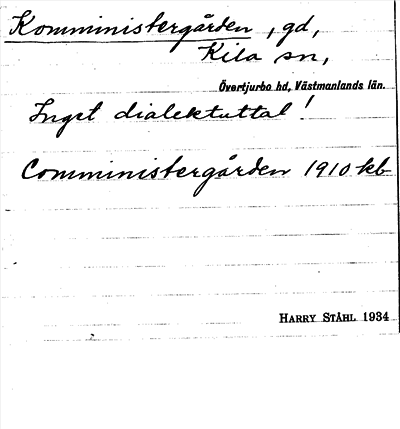 Komministergården, gd,
Kila sn,
Övertjurbo hd, Västmanlands län.
Inget dialektuttal!
Comministergården 1910 kb
HARRY STÅHL 1934